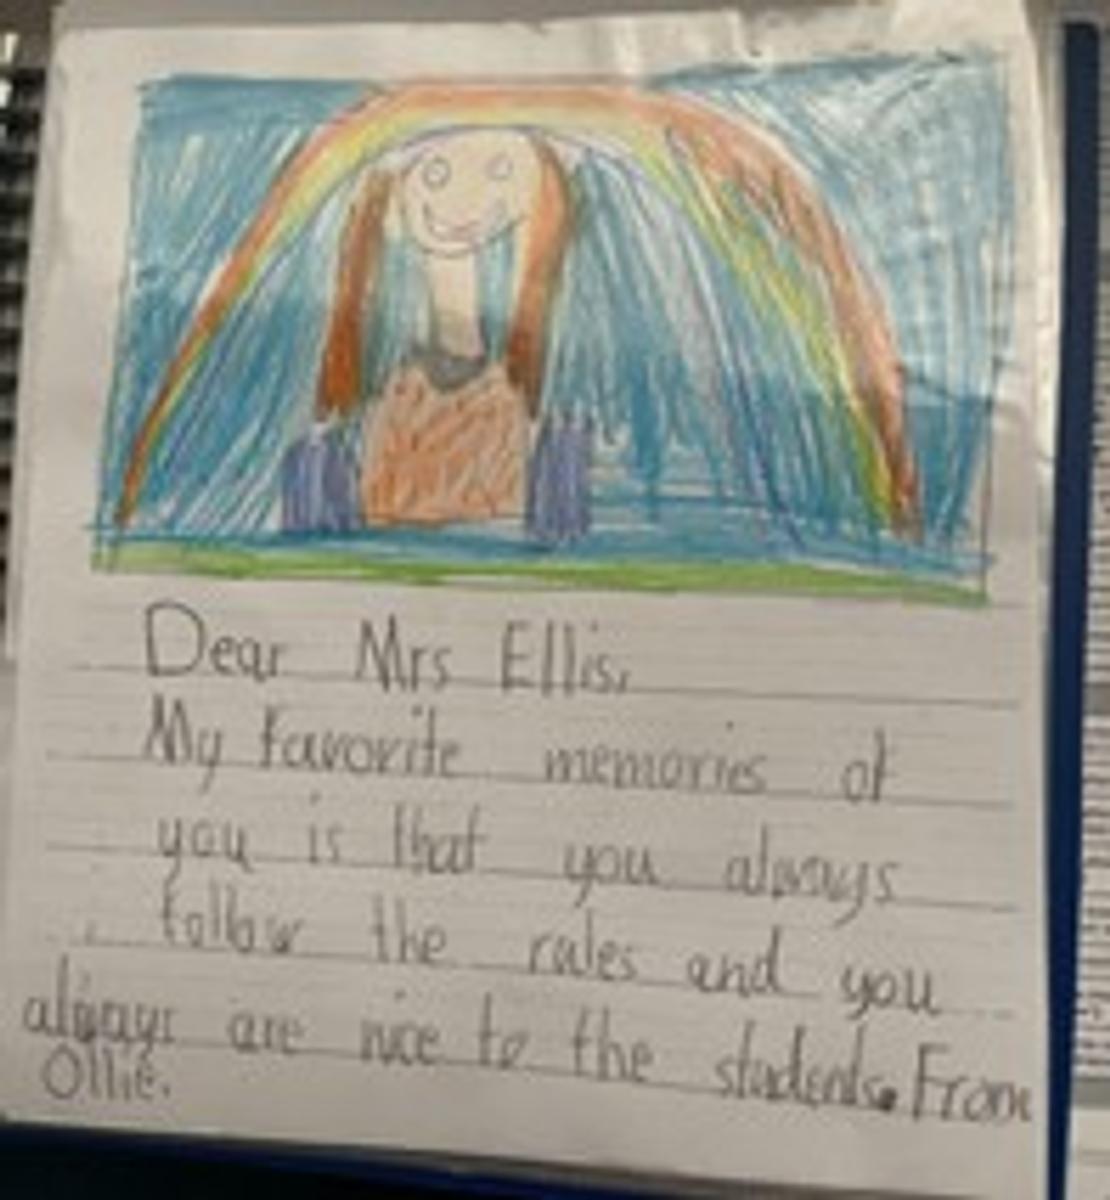 Dear Mrs Ellis,
My favorite memories of
you is that you always
follow the rules and you
always are nice to the students. From
Ollie.